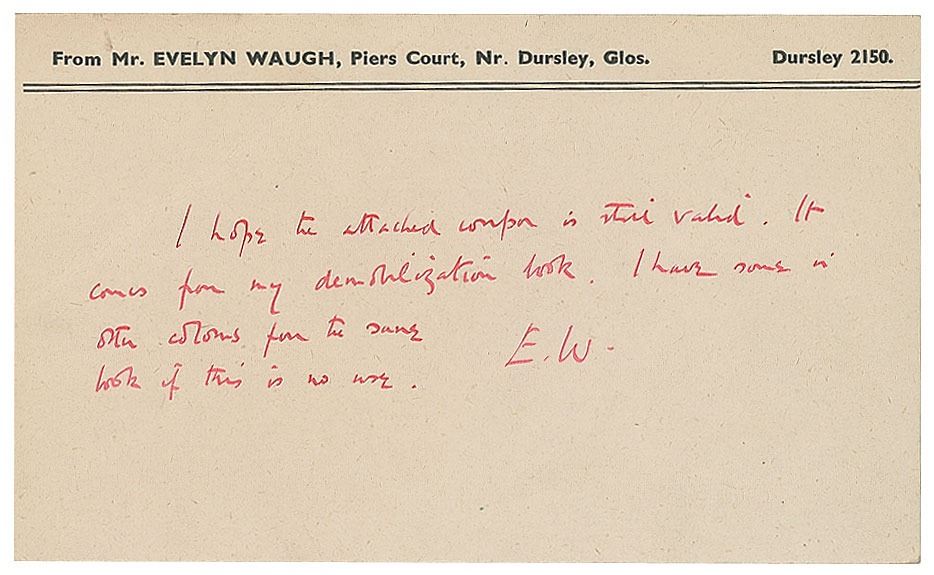 From Mr. EVELYN WAUGH, Piers Court, Nr. Dursley, Glos. Dursley 2150.
I hope the attached coupon is still valid. It
comes from my demobilization book. I have some in
other colours from the same
book if this is no use.
E.W.